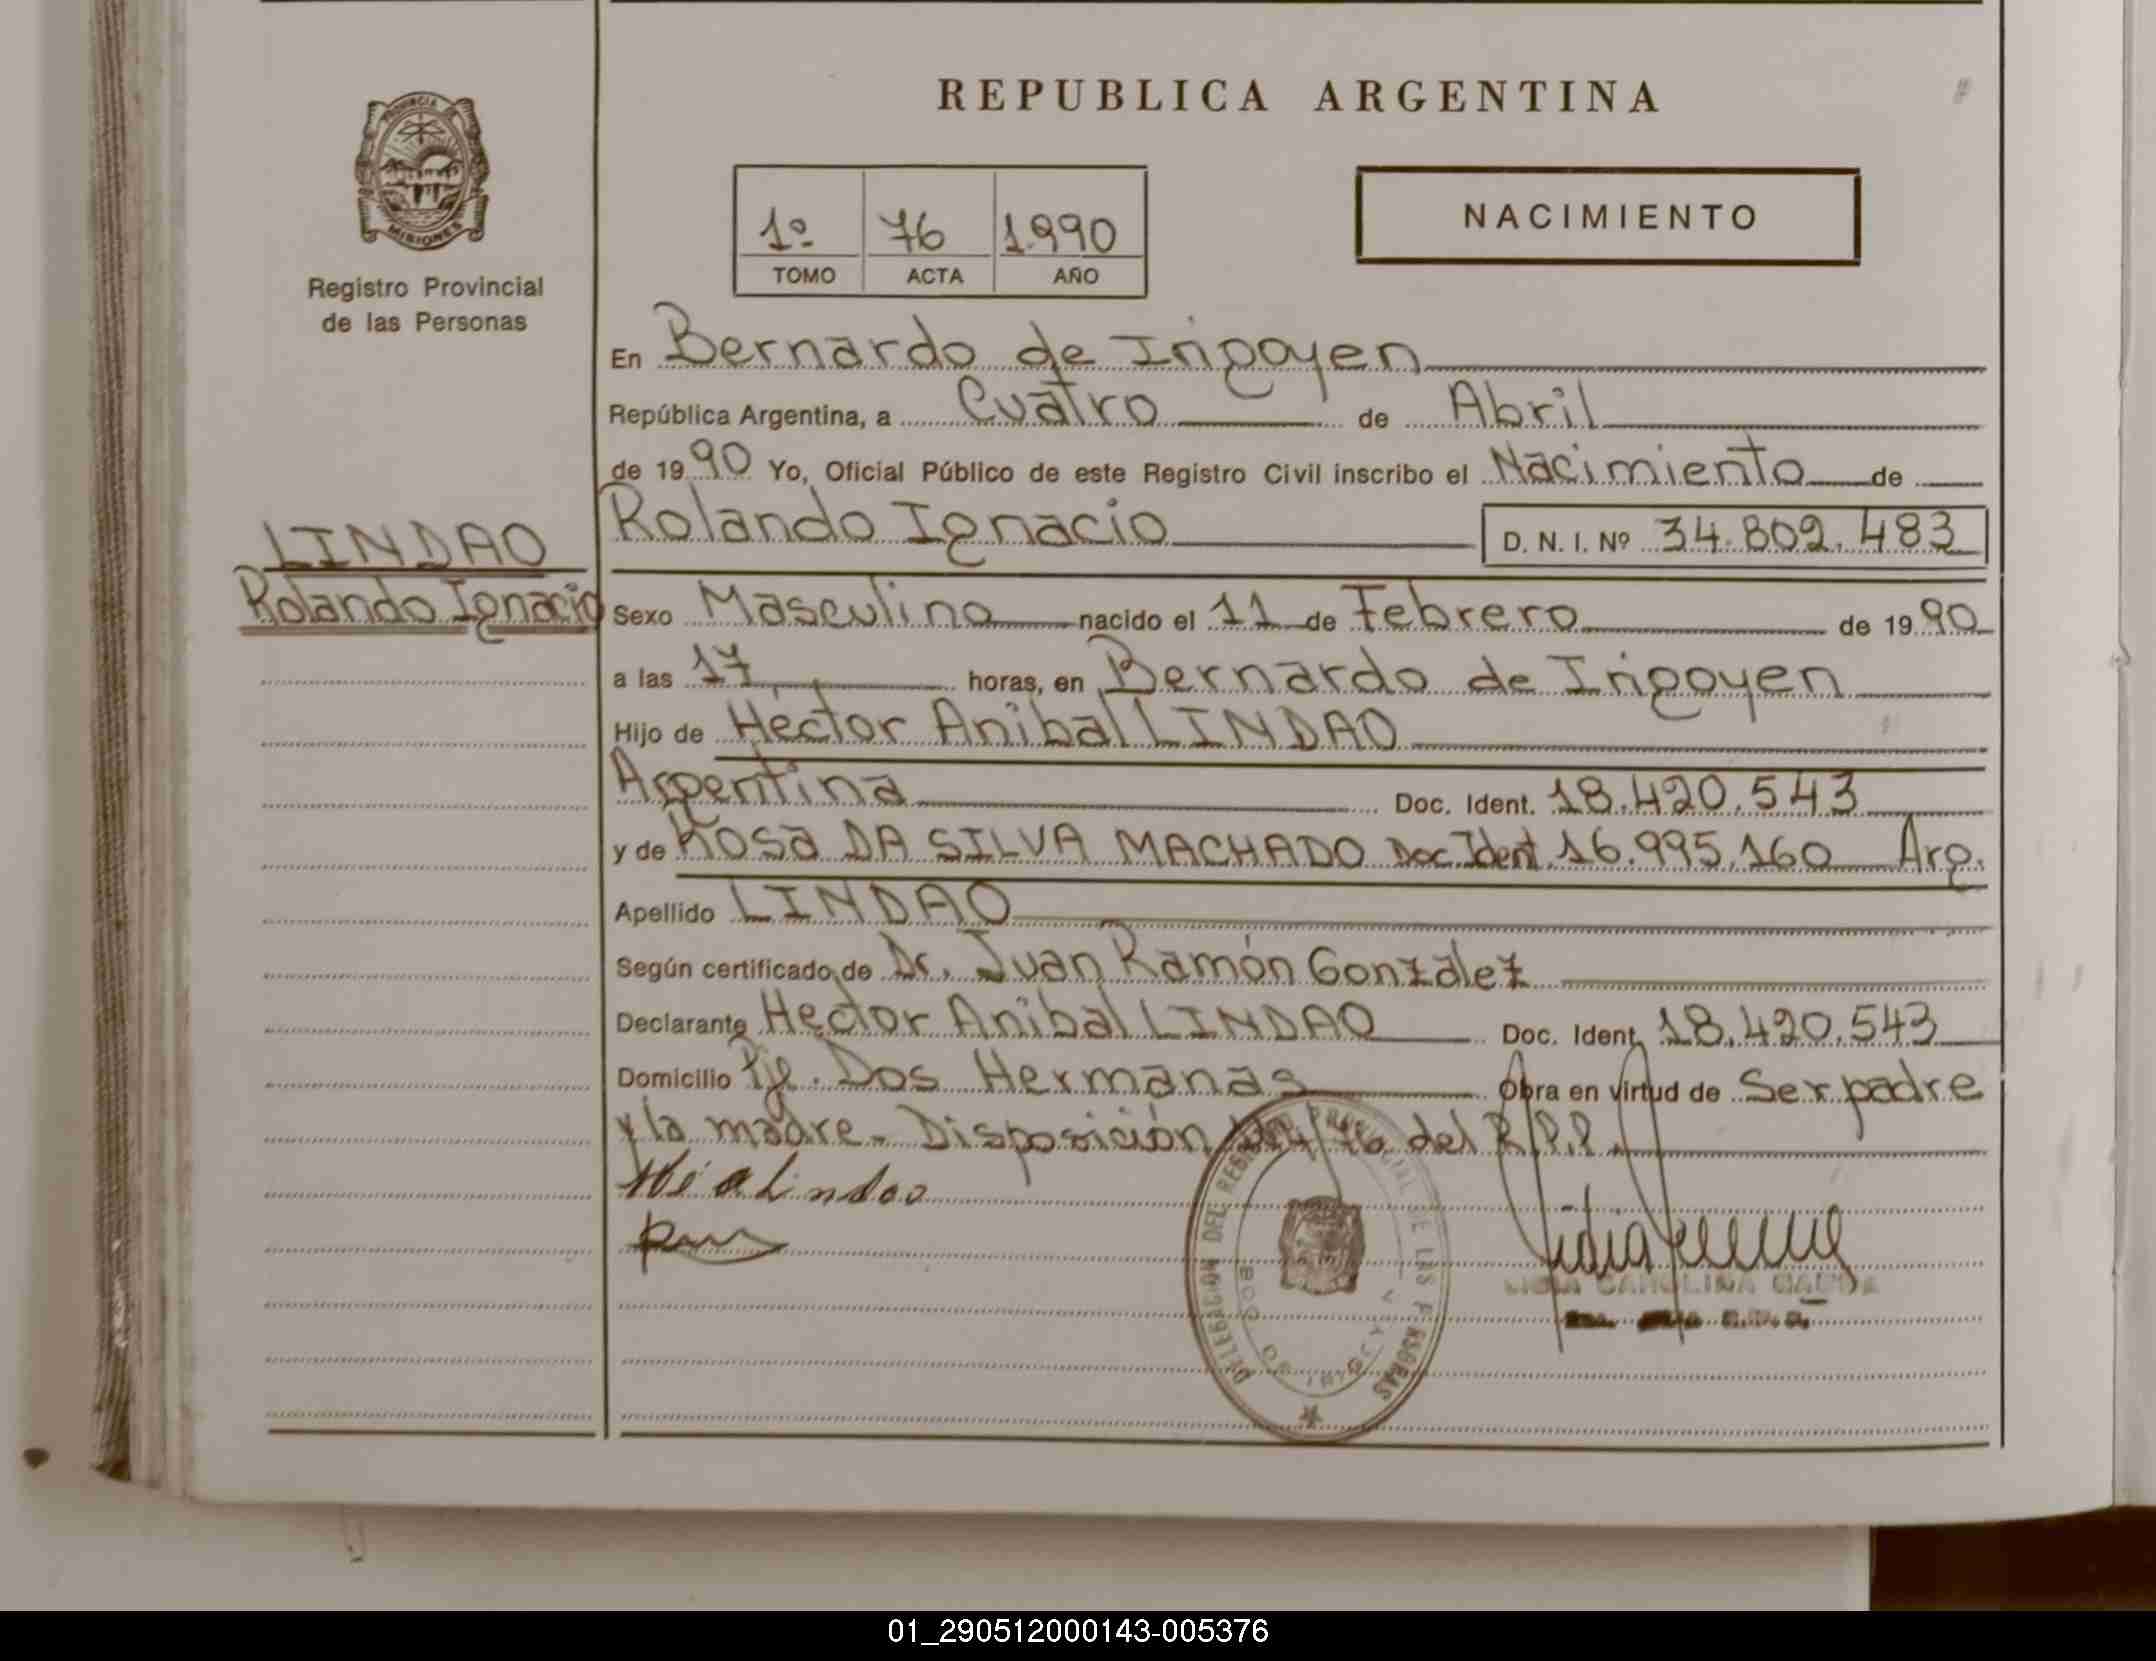 REPUBLICA ARGENTINA
PROVINCIA DE
MISIONES
Registro Provincial
de las Personas
1º 76 1.990
TOMO ACTA AÑO
NACIMIENTO
En Bernardo de Irigoyen
República Argentina, a Cuatro de Abril
de 1990 Yo, Oficial Público de este Registro Civil inscribo el Nacimiento de
LINDAO
Rolando Ignacio
Rolando Ignacio D. N. I. Nº 34.802.483
Sexo Masculino nacido el 11 de Febrero de 1990
a las 17 horas, en Bernardo de Irigoyen
Hijo de Héctor Anibal LINDAO
Argentina Doc. Ident. 18.420.543
y de Rosa DA SILVA MACHADO Doc. Ident. 16.995.160 Arg.
Apellido LINDAO
Según certificado de Dr. Juan Ramón González
Declarante Héctor Anibal LINDAO Doc. Ident. 18.420.543
Domicilio Pje. Dos Hermanas Obra en virtud de Ser padre
y la madre - Disposición /76 del R.P.P.
DELEGACION DEL REGISTRO PROVINCIAL DE LAS PERSONAS
LIDIA CAROLINA
01_290512000143-005376